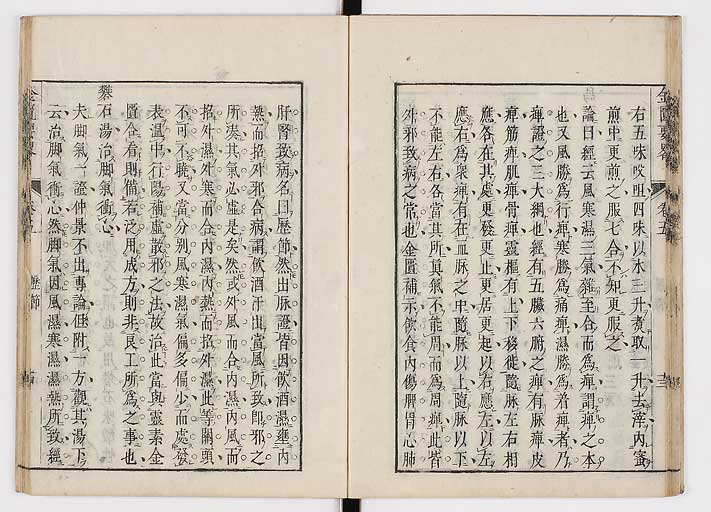 金匱要略 卷五
右五味㕮咀四味以水三升煑取一升去滓内蜜
煎中更煎之服七合不知更服之
論曰經云風寒濕三氣雜至合而為痺謂痺之本
也又風勝為行痺寒勝為痛痺濕勝為着痺者乃
痺證之三大綱也經有五臟六腑之痺有脉痺皮
痺筋痺肌痺骨痺靈樞有上下移徙隨脉左右相
應各在其處更發更止更居更起以右應左以左
應右為衆痺有在血脉之中隨脉以上隨脉以下
不能左右各當其所真氣不能周而為周痺此皆
外邪致病之常也金匱補示飲食内傷脾胃心肺
肝腎致病名曰歷節然出脉證皆因飲酒濕壅内
熱而招外邪合病謂飲酒汗出當風所致即邪之
所湊其氣必虛是矣然或外風而合内濕内風而
招外濕外寒而合内濕内熱而招外濕此等關頭
不可不曉又當分别風寒濕氣偏多偏少而處發
表溫中行陽補虛散邪之法故治此當與靈素金
匱合看則備若泛用成方則非良工所為之事也
礬石湯治脚氣衝心
夫脚氣一證仲景不出專論但附一方觀其湯下
云治脚氣衝心然脚氣因風濕寒濕濕熱所致經
歷節